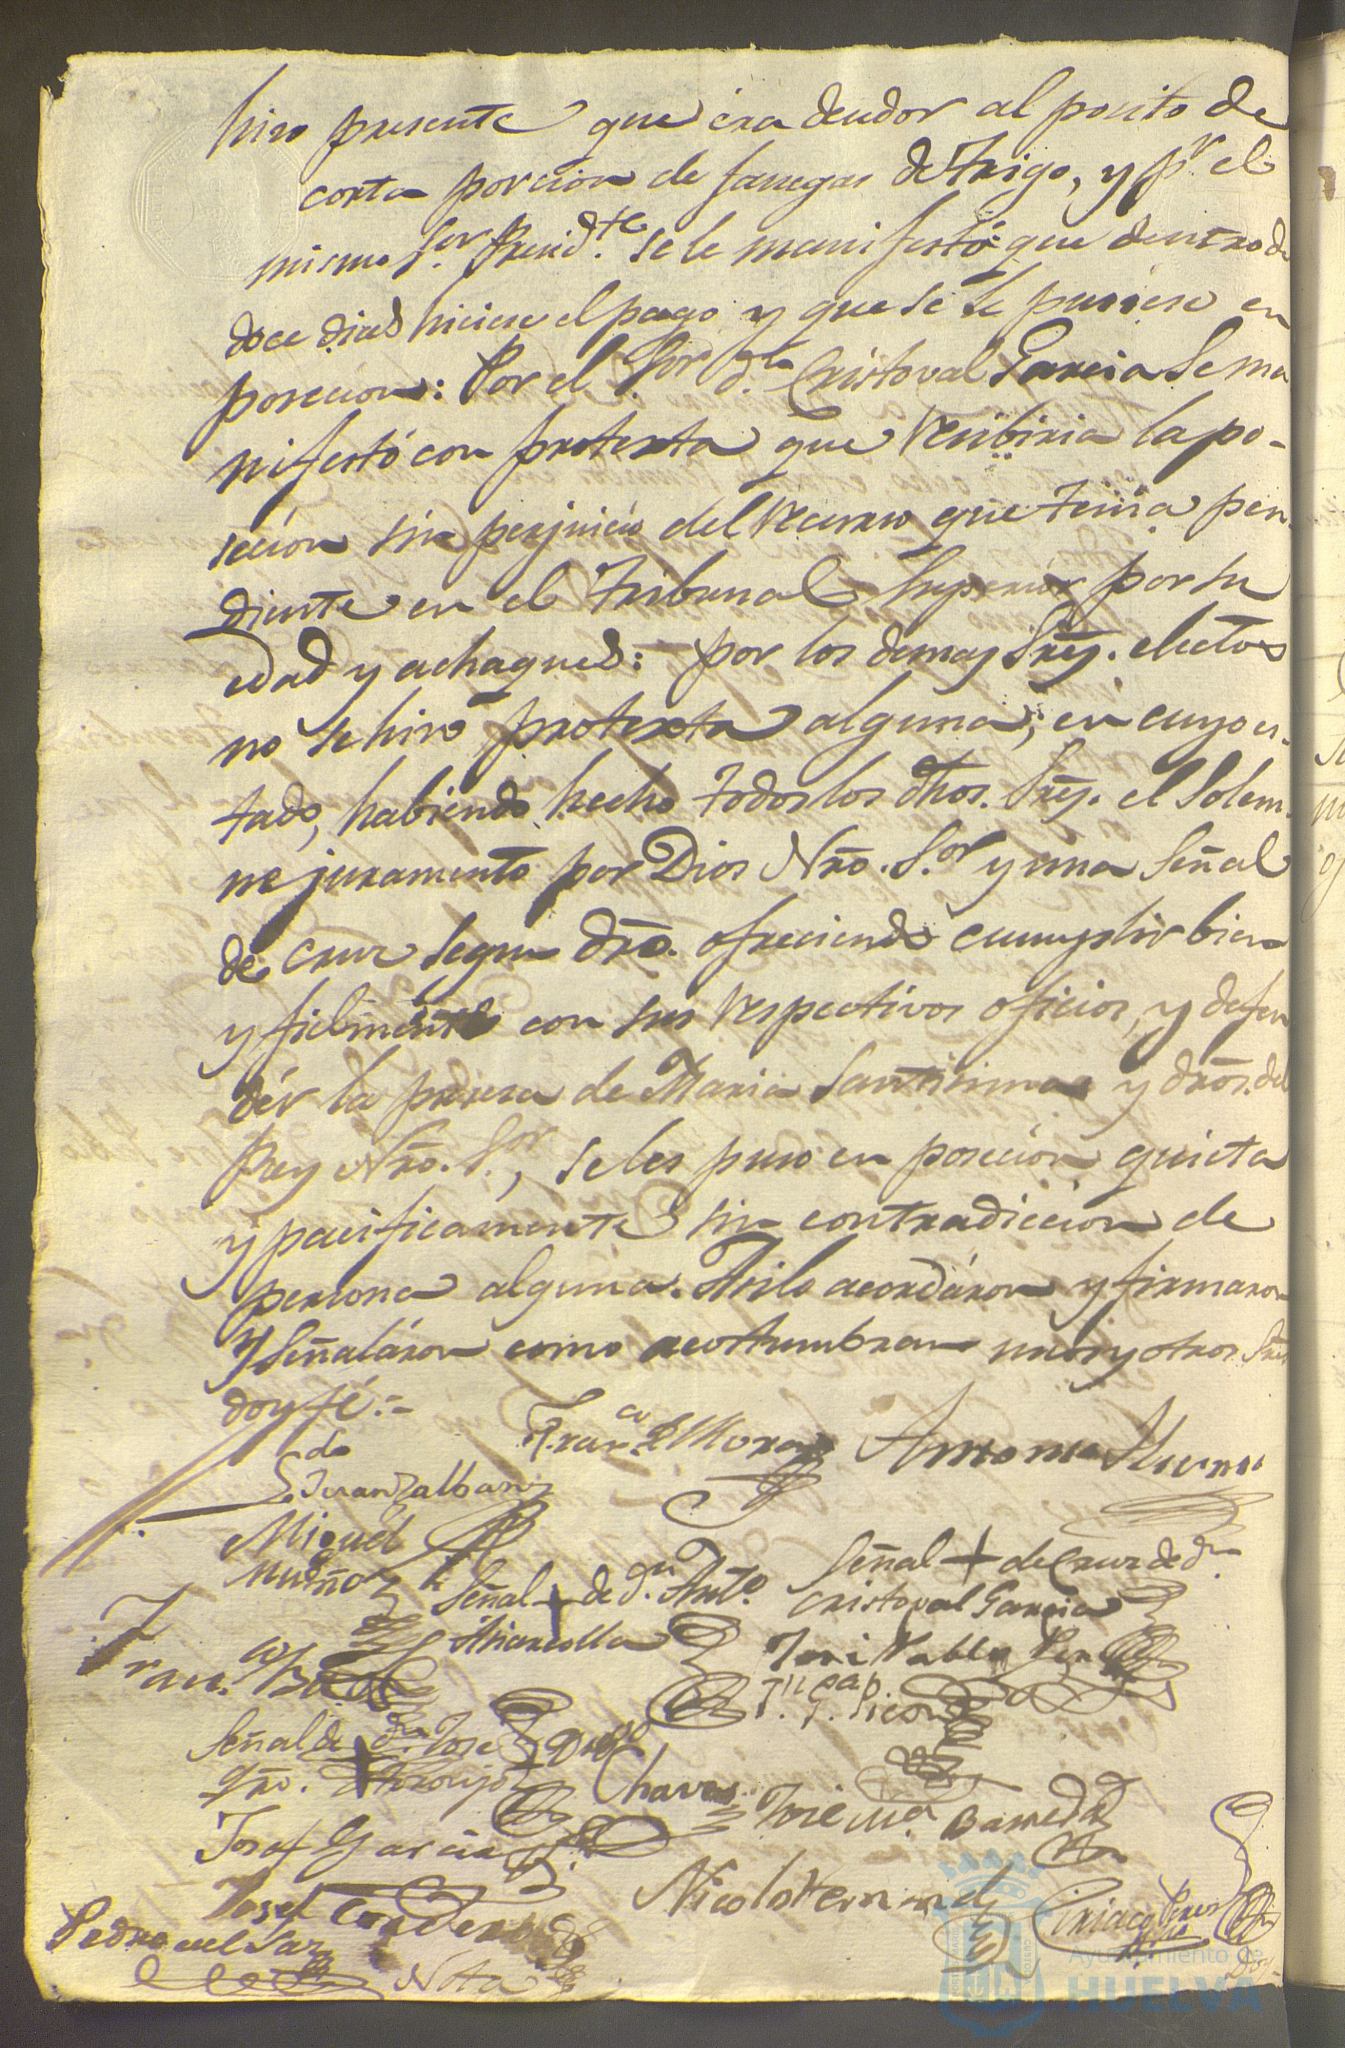 hizo presente que era deudor al posito de
corta porcion de fanegas de Trigo, y pr. el
mismo Sor. Presidte. se le manifestó que dentro de
doce dias hiciese el pago y que se le pusiese en
posecion: Por el Sor. dn. Cristoval Garcia se ma
nifestó con protexta que recibiria la po-
secion sin perjuicio del recurso que tenia pen
diente en el Tribunal Superior por su
edad y achaques: por los demas Sres. electos
no se hizo protexta alguna; en cuyo es-
tado, habiendo hecho todos los dhos. Sres. el Solem
ne juramento por Dios Nro. Sor. y una Señal
de cruz segun dro. ofreciendo cumplir bien
y fielmente con sus respectivos oficios, y defen
dér la pureza de Maria Santisima y dros. del
Rey Nro. Sor., se les puso en posecion quieta
y pacificamente sin contradiccion de
persona alguna. Asi lo acordáron y firmaron
y Señaláron como acostumbran unos y otros Sres.
doy fé.=
Franco. de Mora
Miguel
Muñoz
Señal + de dn. Anto.
Señal + de Cruz de dn.
Cristoval Garcia
Franco.
José Pablo Perez
Señal de dn. Jose
Chaves
José Ma. Barreda
Josef Garcia
Nicolas Hernandez
Josef Cordero
Ciriaco Perez
Pedro del Saz
Nota
Doy
Ayuntamiento de
HUELVA